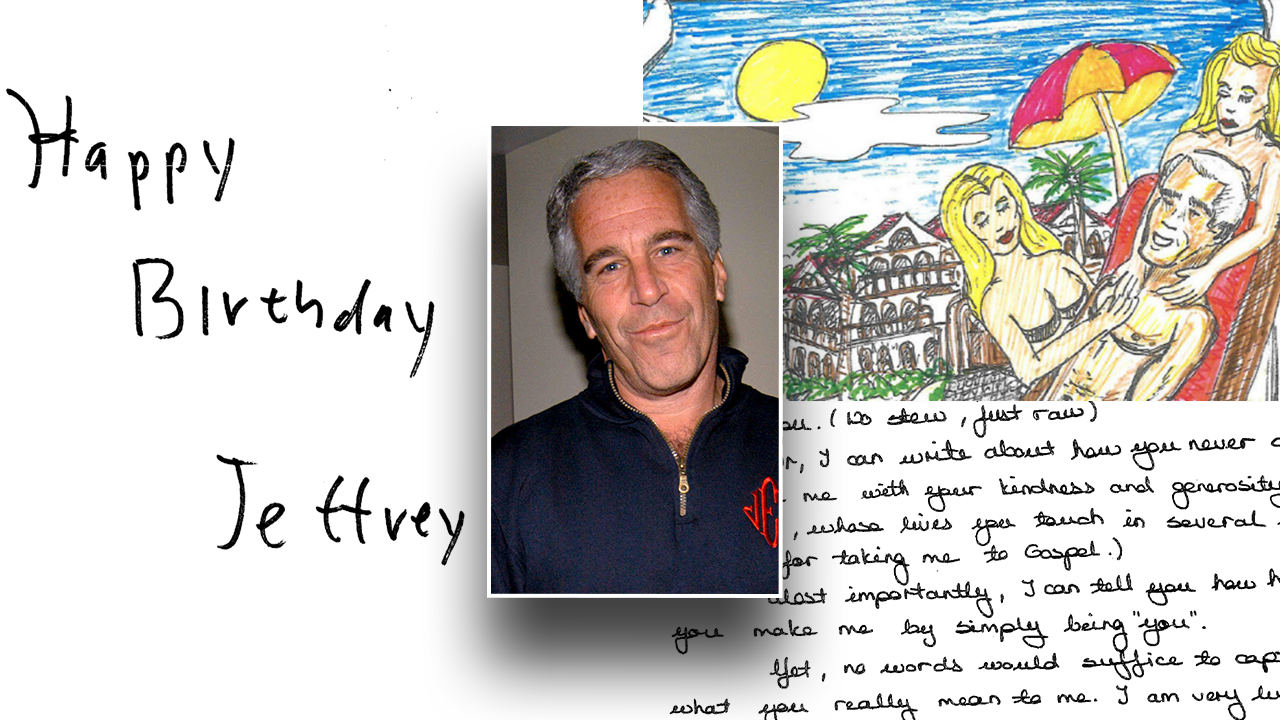 Happy
Birthday
Jeffrey
(No stew, just raw)
, I can write about how you never
me with your kindness and generosity
, whose lives you touch in several
for taking me to Gospel.)
Most importantly, I can tell you how
you make me by simply being "you".
Yet, no words would suffice to
what you really mean to me. I am very